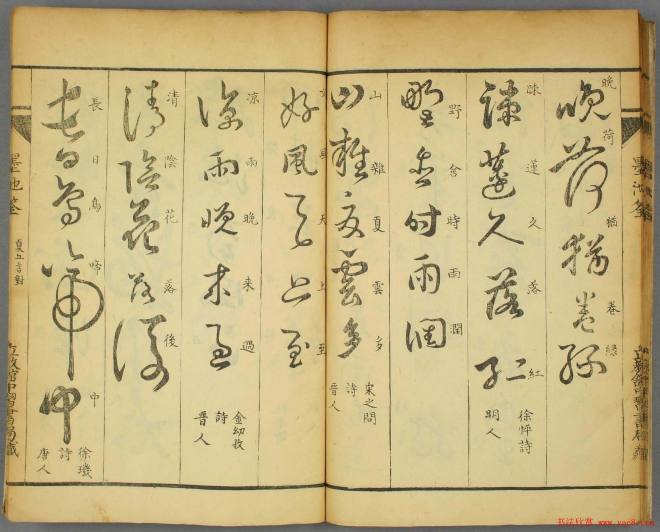 晚荷猶卷綠
晚荷猶卷綠
疎蓮久落紅
疎蓮久落紅
徐怦詩
明人
野含時雨潤
野含時雨潤
山雜夏雲多
山雜夏雲多
宋之問
詩
晉人
好風天上至
好風天上至
涼雨晚來過
涼雨晚来過
金幼孜
詩
晉人
清陰花落後
清陰花落後
長日鳥啼中
長日鳥啼中
徐璣
詩
唐人
墨池筌
夏五言對
书法欣赏 www.yac8.com